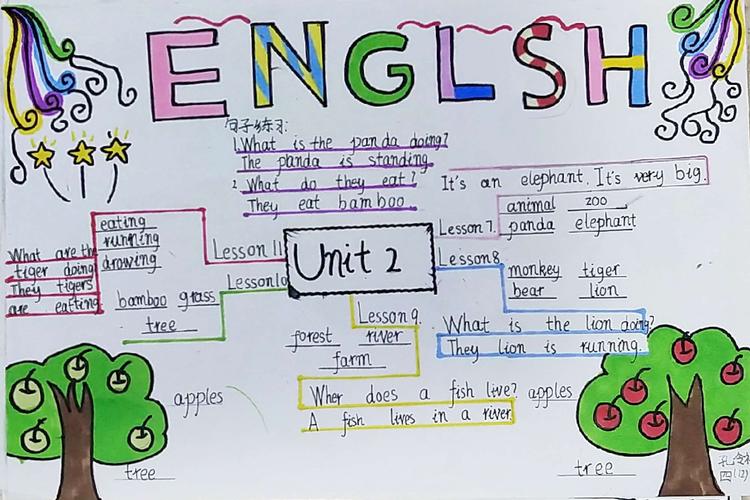 ENGLSH
句子练习:
1.What is the panda doing?
The panda is standing.
2 What do they eat?
They eat bamboo.
It's an elephant. It's very big.
Lesson 7.
animal zoo
panda elephant
Lesson 11
eating
running
drowing
What are the
tiger doing
They tigers
are eatting
Unit 2
Lesson8
monkey tiger
bear lion
What is the lion doing?
They lion is running.
Lesson10
bamboo grass
tree
Lesson 9.
forest river
farm
Wher does a fish live?
A fish lives in a river.
apples
tree
apples
tree
四(12)